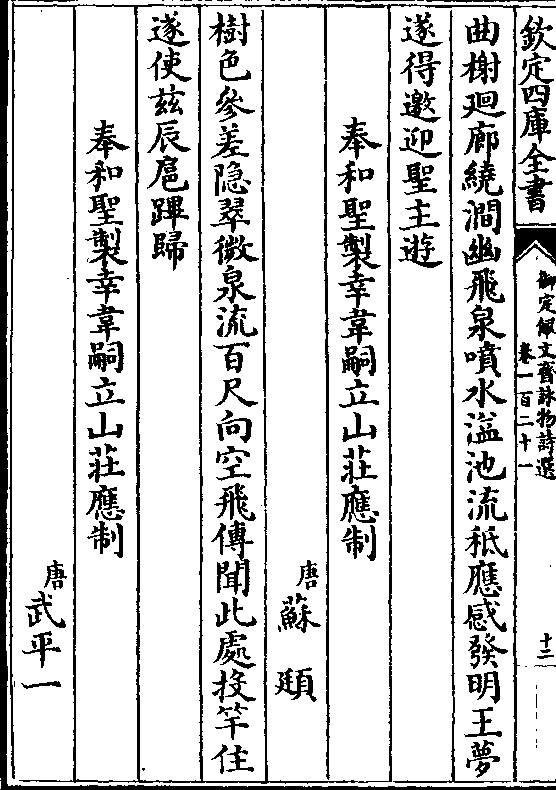 欽定四庫全書
御定佩文齋詠物詩選
卷一百二十一
十二
曲榭廻廊繞澗幽飛泉噴水溢池流秪應感發明王夢
遂得邀迎聖主遊
奉和聖製幸韋嗣立山莊應制
唐 蘇 頲
樹色參差隐翠微泉流百尺向空飛傳聞此處投竿住
遂使兹辰扈蹕歸
奉和聖製幸韋嗣立山莊應制
唐 武平一